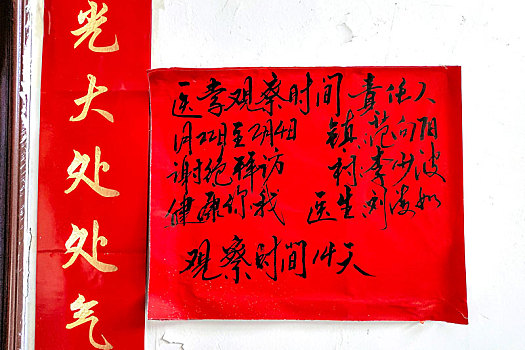 光大处处气
医学观察时间 責任人
月22日至2月4日 镇:范向阳
谢绝拜访 村:李少波
健康你我 医生刘凌如
观察时间14天